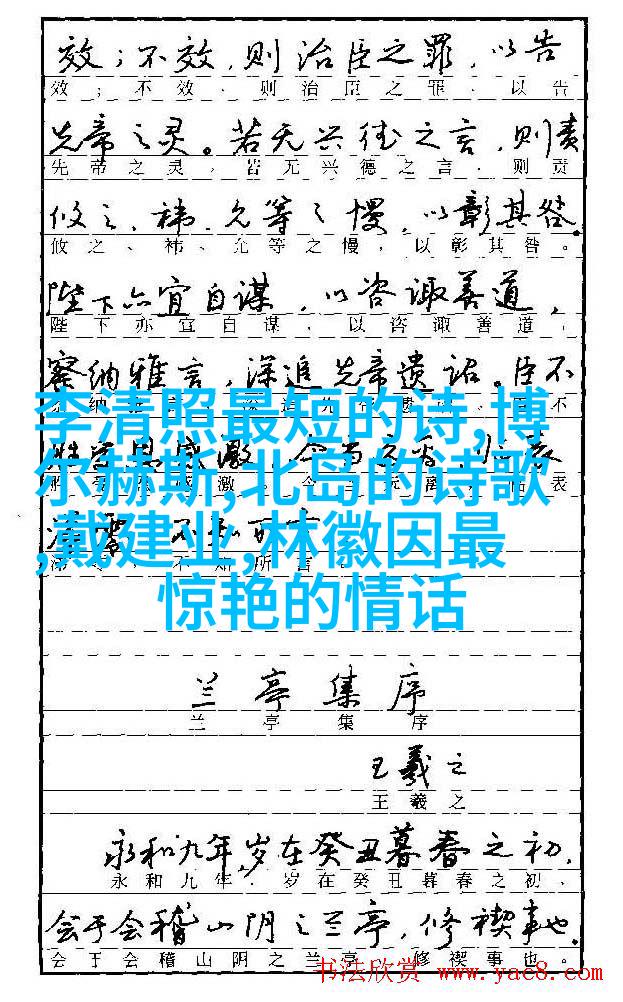 效；不效，则治臣之罪，以告
效；不效、则治臣之罪、以告
先帝之灵。若无兴德之言，则责
先帝之灵，若无兴德之言、则责
攸之、祎、允等之慢，以彰其咎。
攸之、祎、允等之慢，以彰其咎。
陛下亦宜自谋，以咨诹善道，
陛下亦宜自谋、以咨诹善道，
察纳雅言，深追先帝遗诏。臣不
李清照最短的诗,博
尔赫斯,北岛的诗歌
,戴建业,林徽因最
惊艳的情话
兰亭集序
兰亭集序
王羲之
王羲之
永和九年,岁在癸丑暮春之初,
永和九年．岁在癸丑暮春之初、
会于会稽山阴之兰亭，修禊事也。
会于会稽山阴之兰亭 修禊事也。
书法欣赏 www.yac8.com